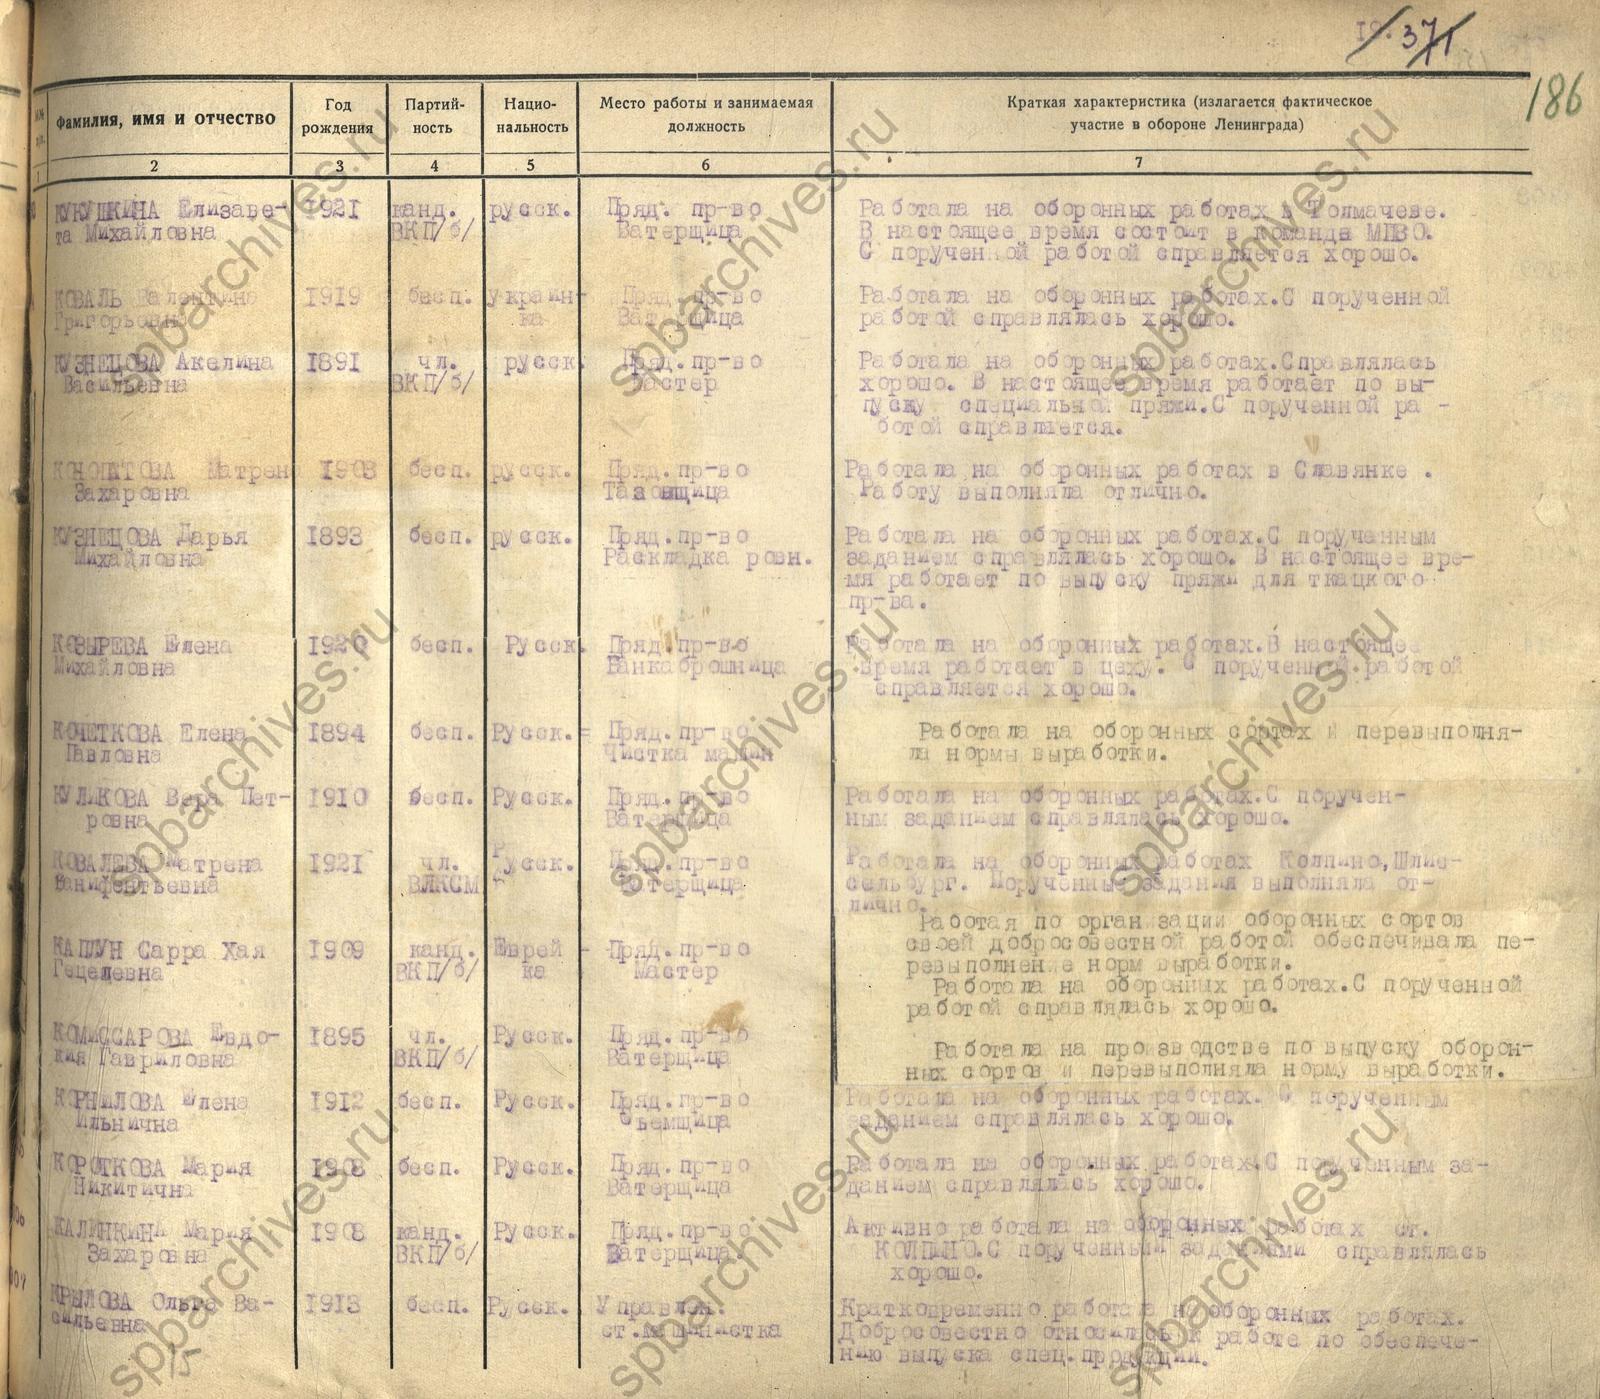 371
186
Фамилия, имя и отчество
Год рождения
Партий-ность
Нацио-нальность
Место работы и занимаемая должность
Краткая характеристика (излагается фактическое участие в обороне Ленинграда)
1 2 3 4 5 6 7
КУКУШКИНА Елизаве- 1921 канд. русск. Пряд. пр-во Работала на оборонных работах в Толмачеве.
та Михайловна ВКП/б/ Ватерщица В настоящее время состоит в команде МПВО.
С порученной работой справляется хорошо.
КОВАЛЬ Валентина 1919 бесп. украин- Пряд. пр-во Работала на оборонных работах.С порученной
Григорьевна ка Ватерщица работой справлялась хорошо.
КУЗНЕЦОВА Акелина 1891 чл. русск. Пряд.пр-во Работала на оборонных работах.Справлялась
Васильевна ВКП/б/ Мастер хорошо. В настоящее время работает по вы-
пуску специальной пряжи.С порученной ра -
ботой справляется.
Матрен 1903 бесп. русск. Пряд.пр-во Работала на оборонных работах в Славянке .
Захаровна Тазовщица Работу выполняла отлично.
КУЗНЕЦОВА Дарья 1893 бесп. русск. Пряд.пр-во Работала на оборонных работах.С порученным
Михайловна Раскладка ровн. заданием справлялась хорошо. В настоящее вре-
мя работает по выпуску пряжи для ткацкого
пр-ва.
КОЗЫРЕВА Елена 1920 бесп. Русск. Пряд.пр-во Работала на оборонных работах.В настоящее
Михайловна Банкаброшница время работает в цеху. С порученной работой
справляется хорошо.
КОЧЕТКОВА Елена 1894 бесп. Русск. Пряд.пр-во Работала на оборонных сортах и перевыполня-
Павловна Чистка машин ла нормы выработки.
КУЛИКОВА Вера Пет- 1910 бесп. Русск. Пряд.пр-во Работала на оборонных работах.С поручен-
ровна Ватерщица ным заданием справлялась хорошо.
КОВАЛЕВА Матрена 1921 чл. Русск. Пряд.пр-во Работала на оборонных работах Колпино,Шлис-
Ванифентьевна ВЛКСМ Ватерщица сельбург. Порученные задания выполняла от-
лично.
Работая по организации оборонных сортов
своей добросовестной работой обеспечивала пе-
КАПЛУН Сарра Хая 1909 канд. Еврей - Пряд.пр-во ревыполнение норм выработки.
Гецелевна ВКП/б/ ка Мастер Работала на оборонных работах.С порученной
работой справлялась хорошо.
КОМИССАРОВА Евдо- 1895 чл. Русск. Пряд.пр-во Работала на производстве по выпуску оборон-
кия Гавриловна ВКП/б/ Ватерщица ных сортов и перевыполняла норму выработки.
КОРНИЛОВА Елена 1912 бесп. Русск. Пряд.пр-во Работала на оборонных работах. С порученным
Ильнична Съемщица заданием справлялась хорошо.
КОРОТКОВА Мария 1908 бесп. Русск. Пряд.пр-во Работала на оборонных работах.С порученным за-
Никитична Ватерщица данием справлялась хорошо.
КАЛИНКИНА Мария 1908 канд. Русск. Пряд.пр-во Активно работала на оборонных работах ст.
Захаровна ВКП/б/ Ватерщица. КОЛПИНО.С порученными заданиями справлялась
хорошо.
КРЫЛОВА Ольга Ва- 1913 бесп. Русск. Управлен. Кратковременно работала на оборонных работах.
сильевна ст.машинистка Добросовестно относилась к работе по обеспече-
нию выпуска спец.продукции.
15
spbarchives.ru
spbarchives.ru
spbarchives.ru
spbarchives.ru
spbarchives.ru
spbarchives.ru
spbarchives.ru
spbarchives.ru
spbarchives.ru